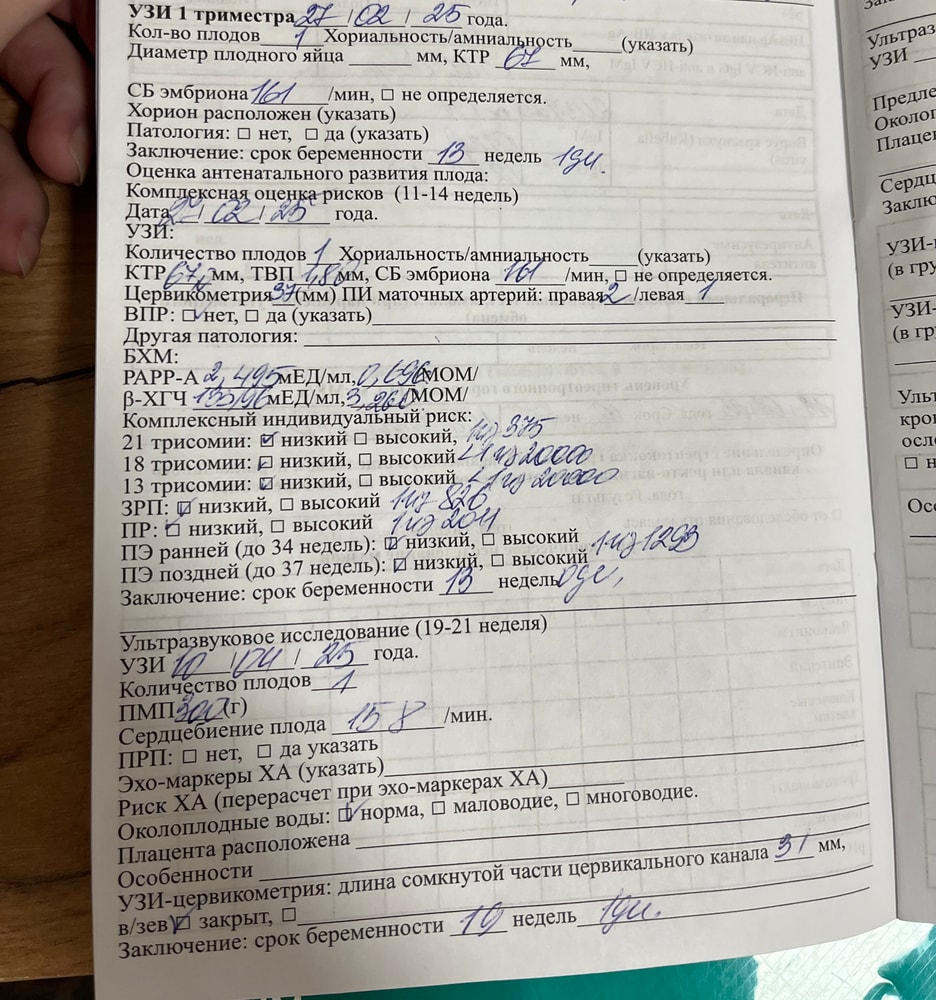 УЗИ 1 триместра 27 / 02 / 25 года.
Кол-во плодов 1 Хориальность/амниальность____(указать)
Диаметр плодного яйца ______ мм, КТР 67 мм,
СБ эмбриона 161 /мин, ☐ не определяется.
Хорион расположен (указать)
Патология: ☐ нет, ☐ да (указать)
Заключение: срок беременности 13 недель 1дн.
Оценка антенатального развития плода:
Комплексная оценка рисков (11-14 недель)
Дата 27 / 02 / 25 года.
УЗИ:
Количество плодов 1 Хориальность/амниальность____(указать)
КТР 67 мм, ТВП 1,80 мм, СБ эмбриона 161 /мин, ☐ не определяется.
Цервикометрия 37 (мм) ПИ маточных артерий: правая 2 /левая 1
ВПР: ☑ нет, ☐ да (указать)
Другая патология:
БХМ:
РАРР-А 2,495 мЕД/мл, 0,696 /МОМ/
β-ХГЧ 133,96 мЕД/мл, 3,260 /МОМ/
Комплексный индивидуальный риск:
21 трисомии: ☑ низкий ☐ высокий, 1из 375
18 трисомии: ☑ низкий, ☐ высокий <1 из 20000
13 трисомии: ☑ низкий, ☐ высокий <1 из 20000
ЗРП: ☑ низкий, ☐ высокий 1из 826
ПР: ☑ низкий, ☐ высокий 1из 2011
ПЭ ранней (до 34 недель): ☑ низкий, ☐ высокий
ПЭ поздней (до 37 недель): ☑ низкий, ☐ высокий 1из 1293
Заключение: срок беременности 13 недель 0дн,
Ультразвуковое исследование (19-21 неделя)
УЗИ 10 / 04 / 25 года.
Количество плодов 1
ПМП 300 (г)
Сердцебиение плода 158 /мин.
ПРП: ☐ нет, ☐ да указать
Эхо-маркеры ХА (указать)
Риск ХА (перерасчет при эхо-маркерах ХА)
Околоплодные воды: ☑ норма, ☐ маловодие, ☐ многоводие.
Плацента расположена
Особенности
УЗИ-цервикометрия: длина сомкнутой части цервикального канала 31 мм,
в/зев ☑ закрыт, ☐
Заключение: срок беременности 19 недель 1дн.
Ультраз
УЗИ
Предле
Околоп
Плацен
Сердц
Заклю
УЗИ-
(в гру
УЗИ-
(в гру
Ульт
кров
осле
☐ н
Осо